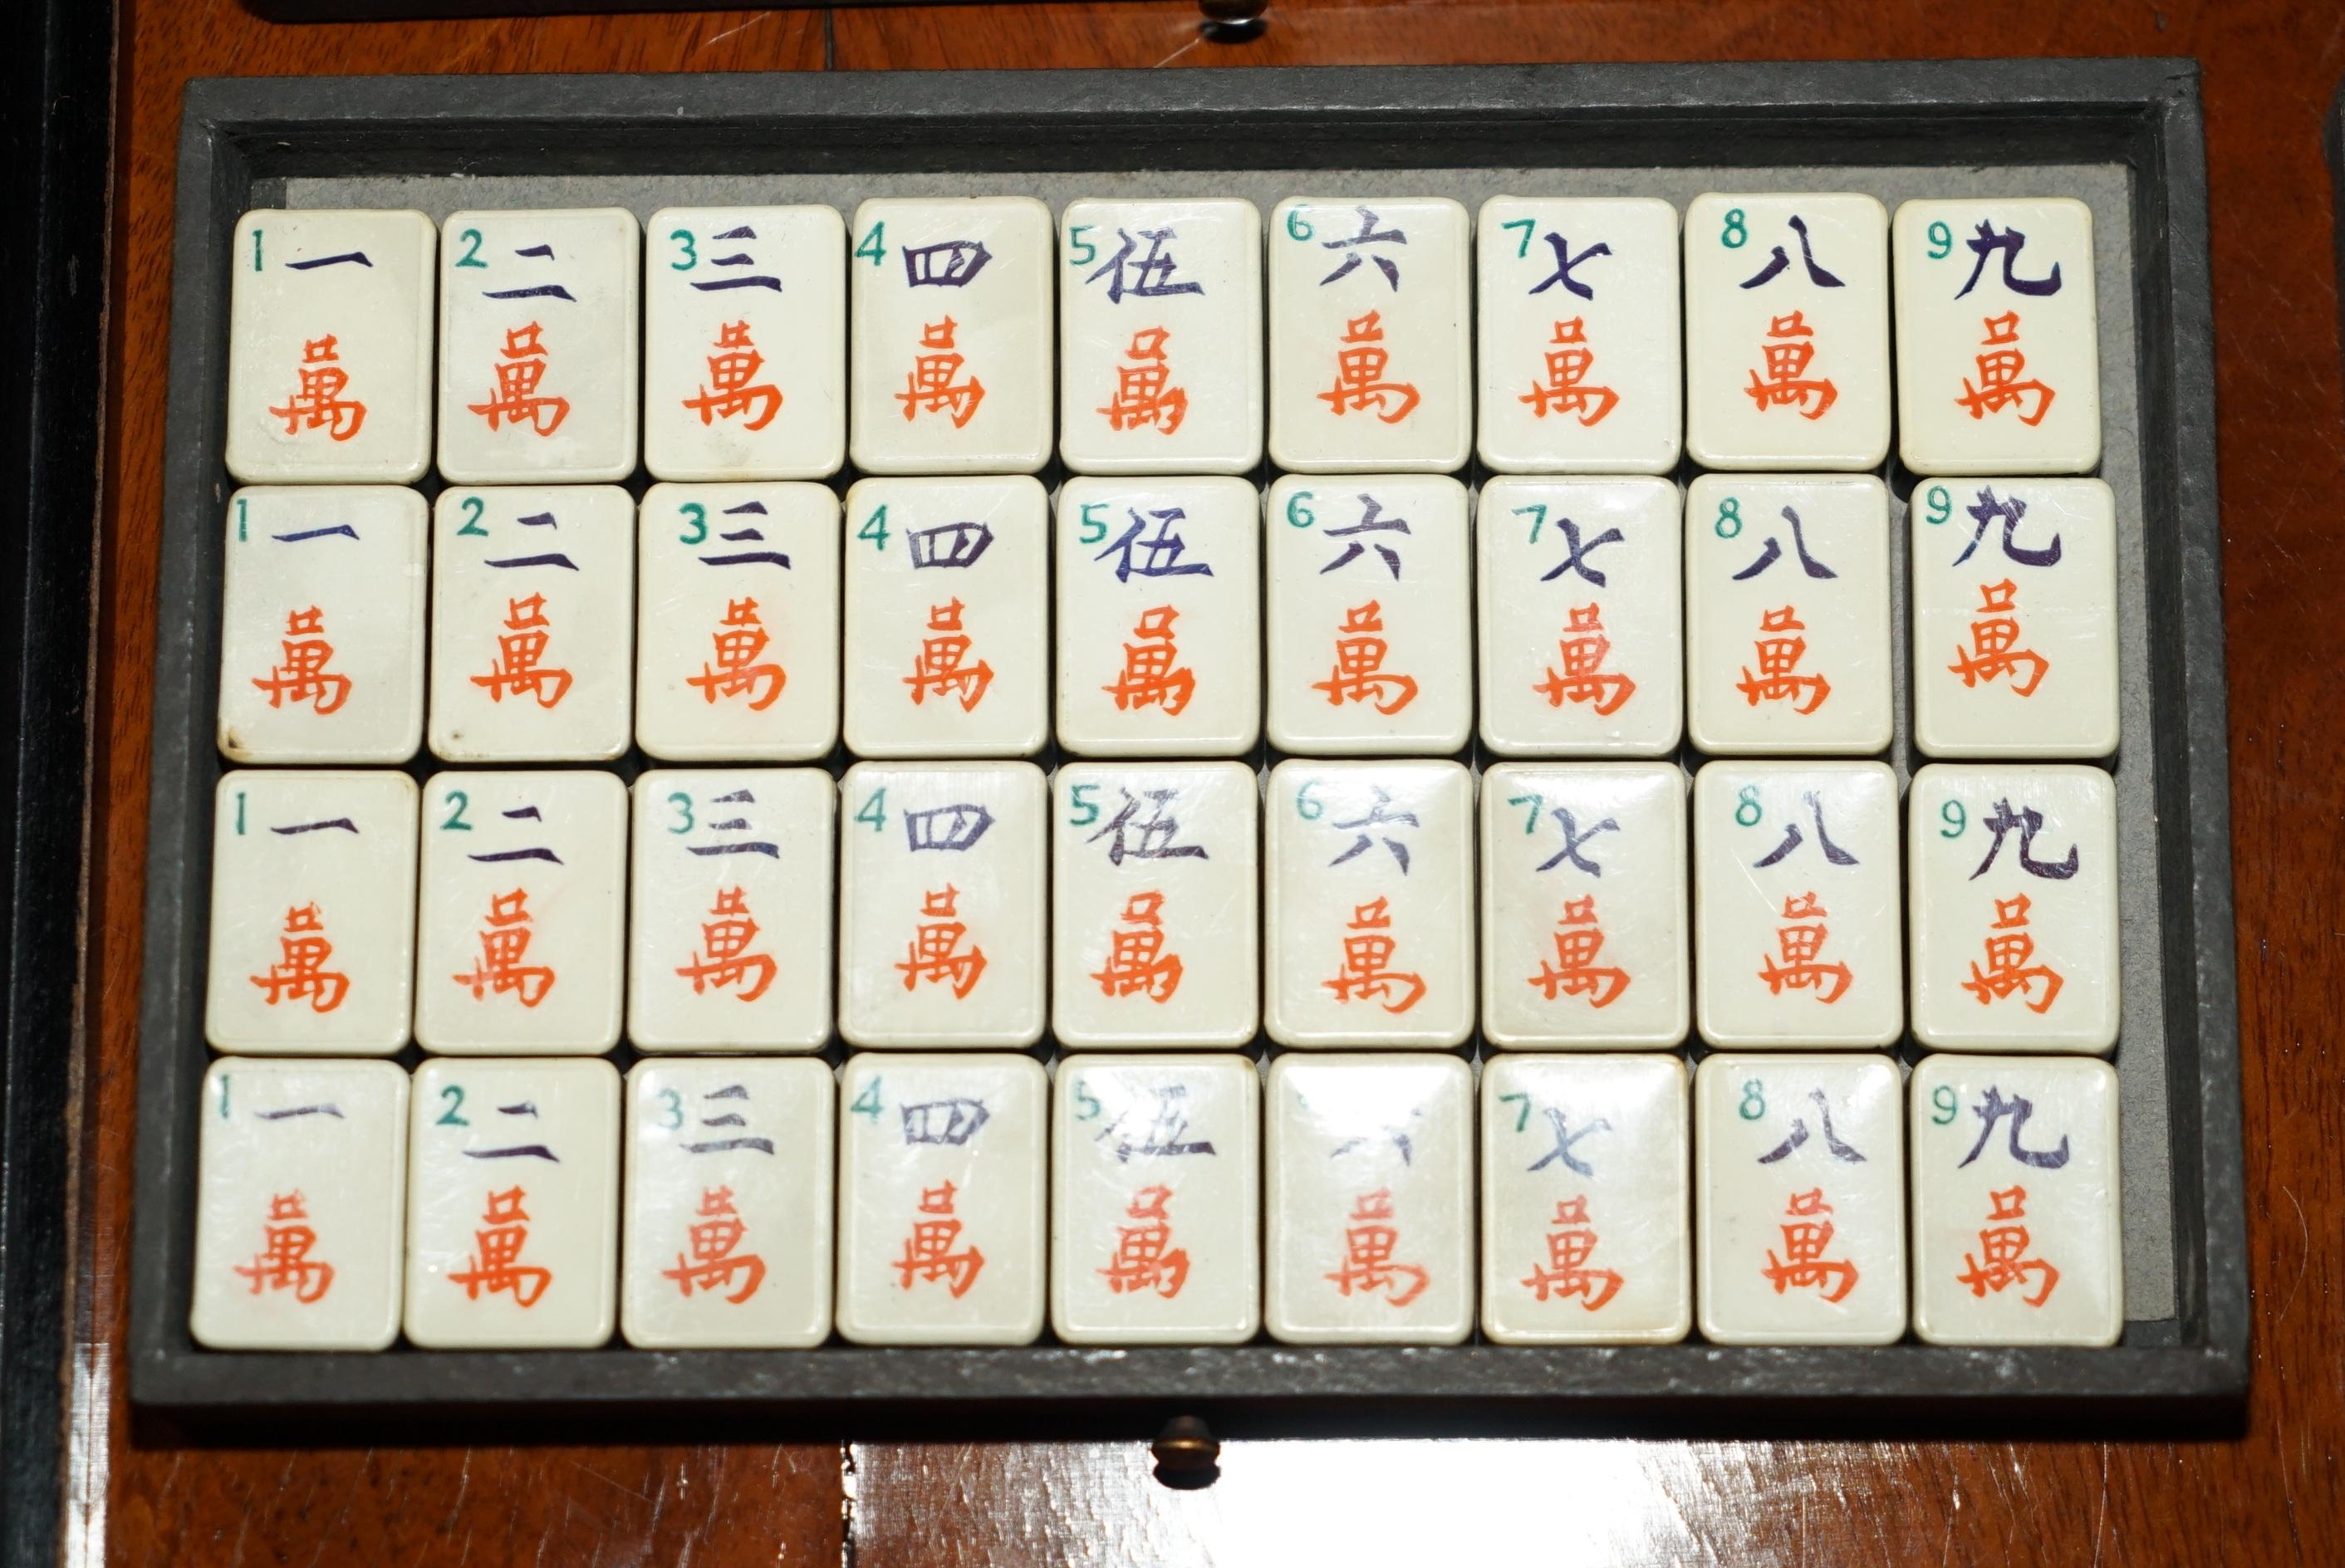 1 一 2 二 3 三 4 四 5 伍 6 六 7 七 8 八 9 九
萬 萬 萬 萬 萬 萬 萬 萬 萬
1 一 2 二 3 三 4 四 5 伍 6 六 7 七 8 八 9 九
萬 萬 萬 萬 萬 萬 萬 萬 萬
1 一 2 二 3 三 4 四 5 伍 6 六 7 七 8 八 9 九
萬 萬 萬 萬 萬 萬 萬 萬 萬
1 一 2 二 3 三 4 四 5 伍 六 7 七 8 八 9 九
萬 萬 萬 萬 萬 萬 萬 萬 萬